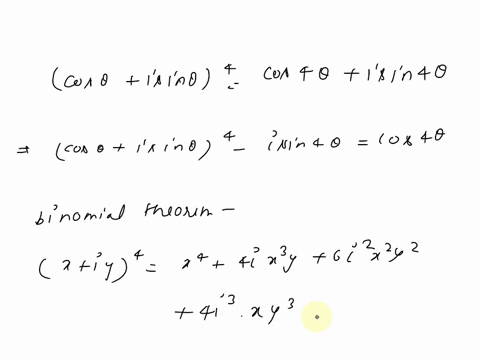 (cosθ + isinθ)⁴ = cos4θ + isin4θ
⇒ (cosθ + isinθ)⁴ - isin4θ = cos4θ
binomial theorem -
(x+iy)⁴ = x⁴ + 4ix³y + 6i²x²y²
+ 4i³.xy³